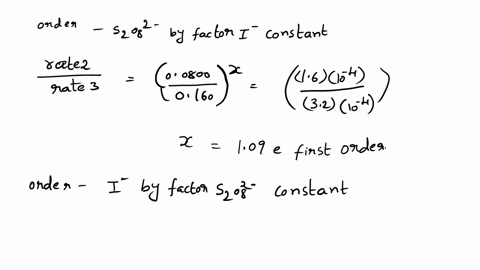 order - S₂O₈²⁻ by factor I⁻ constant
rate2 / rate 3 = (0.0800 / 0.160)ˣ = ((1.6)(10⁻⁴) / (3.2)(10⁻⁴))
x = 1.09 e first order.
order - I⁻ by factor S₂O₈²⁻ constant